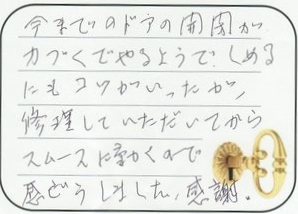 今までのドアの開閉が
力づくでやるようで、しめる
にもコツがいったが、
修理していただいてから
スムースに動くので
感どうしました、感謝。